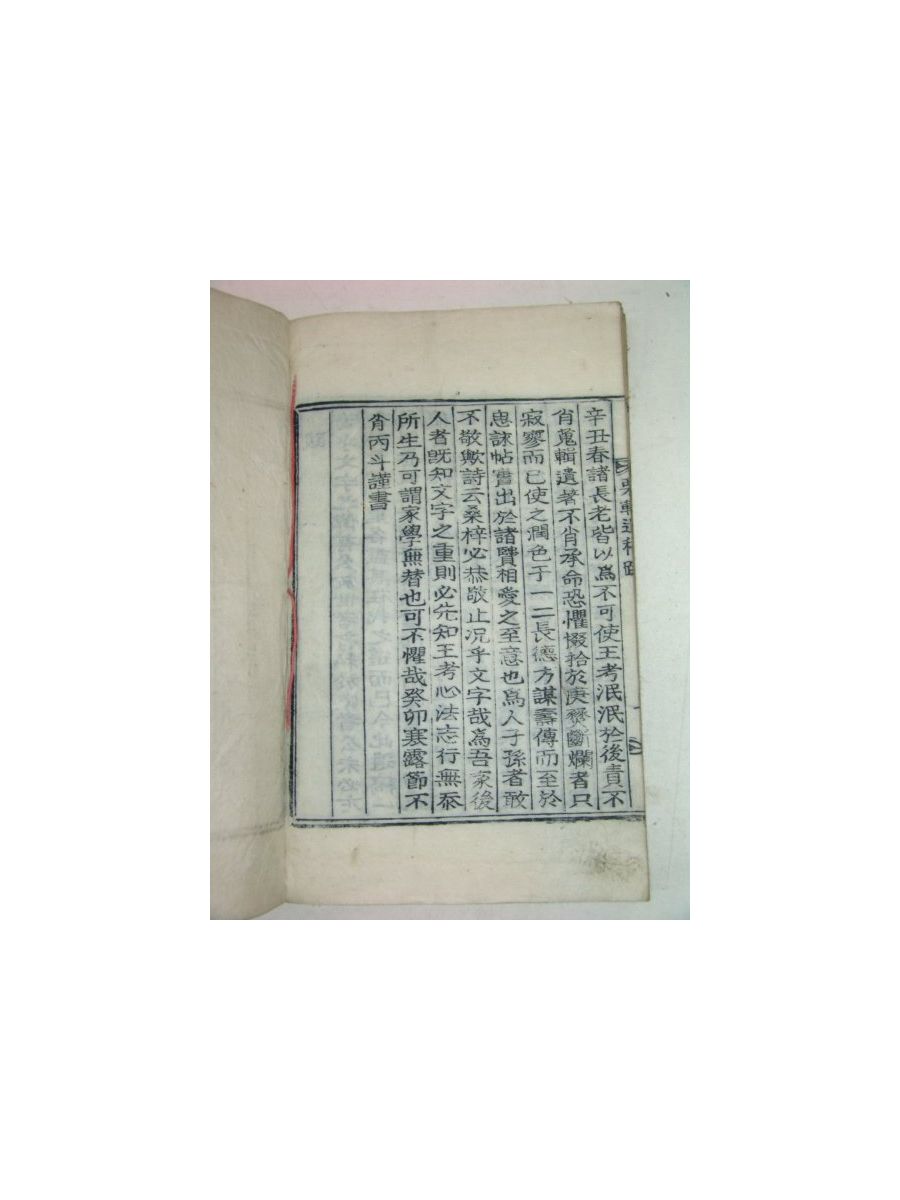 辛丑春諸長老皆以爲不可使王考泯泯於後責不
肖蒐輯遺著不肖承命恐懼掇拾於庚癸斷爛者只
寂寥而已使之潤色于一二長德方謀壽傳而至於
思誄帖實出於諸賢相愛之至意也爲人子孫者敢
不敬歟詩云桑梓必恭敬止况乎文字哉爲吾家後
人者旣知文字之重則必先知王考心法志行無忝
所生乃可謂家學無替也可不懼哉癸卯寒露節不
肖丙斗謹書
軒遺稿跋